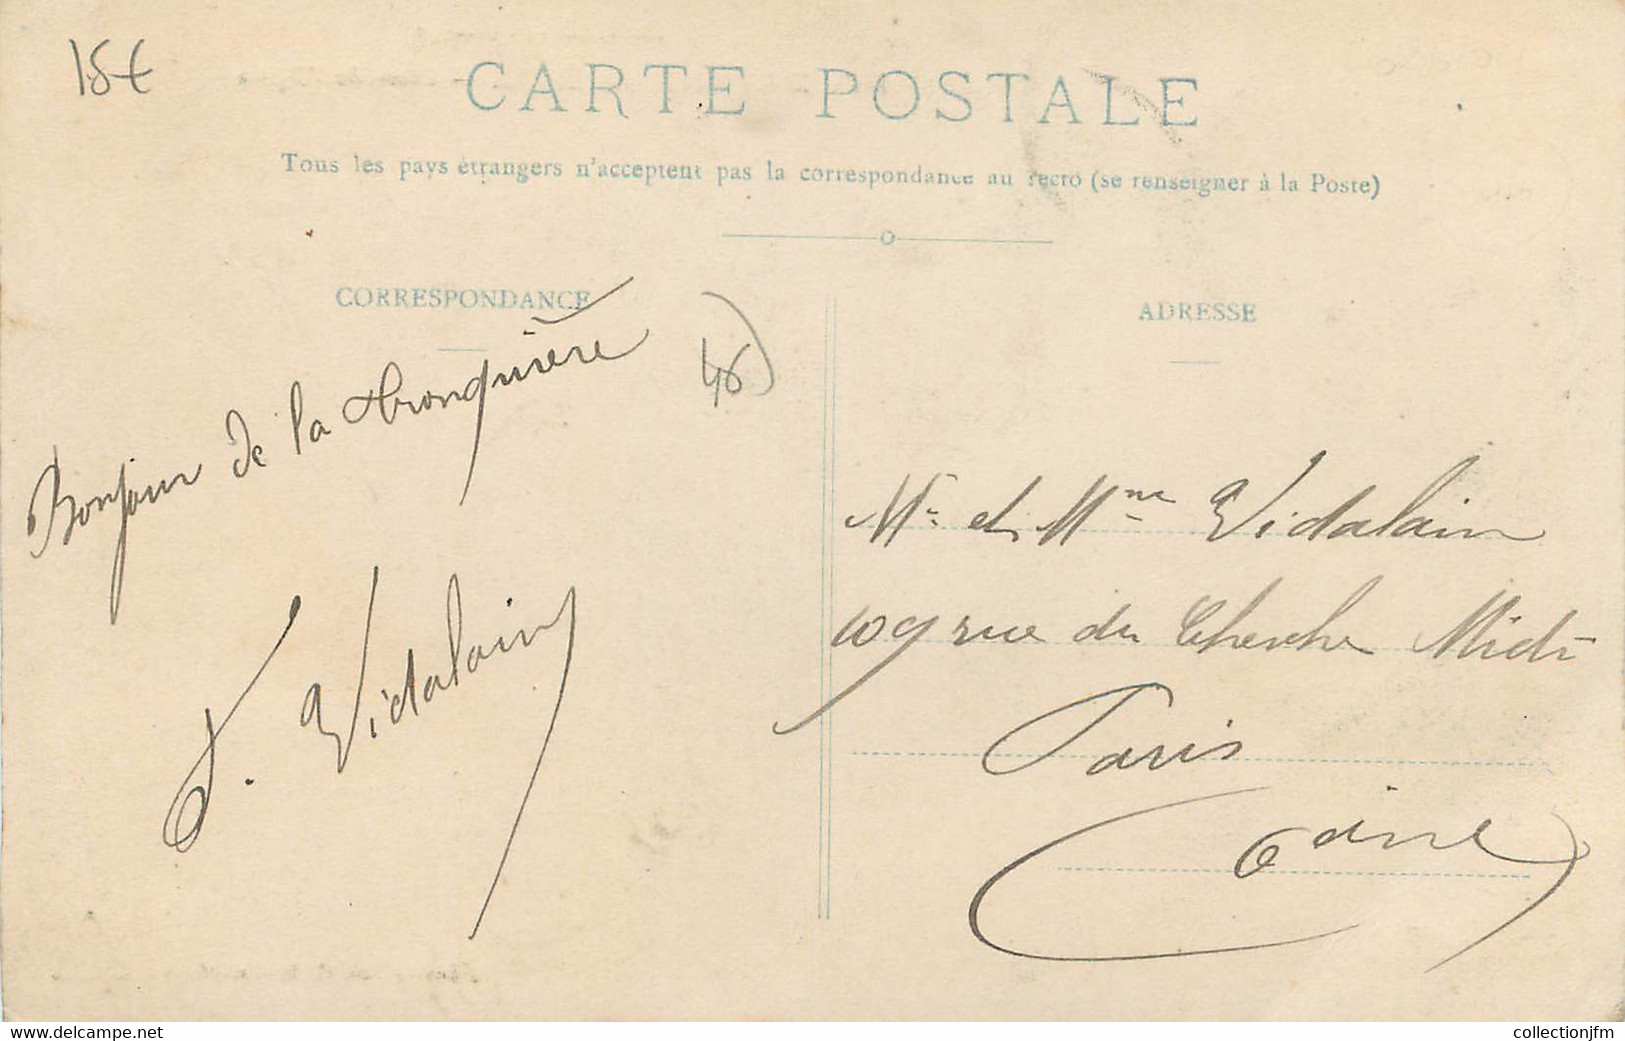 15€
CARTE POSTALE
Tous les pays étrangers n'acceptent pas la correspondance au recto (se renseigner à la Poste)
CORRESPONDANCE
ADRESSE
46)
Bonjour de la tronquière
J. Vidalain
Mr et Mme Vidalain
109 rue du Cherche Midi
Paris
Seine
www.delcampe.net
collectionjfm